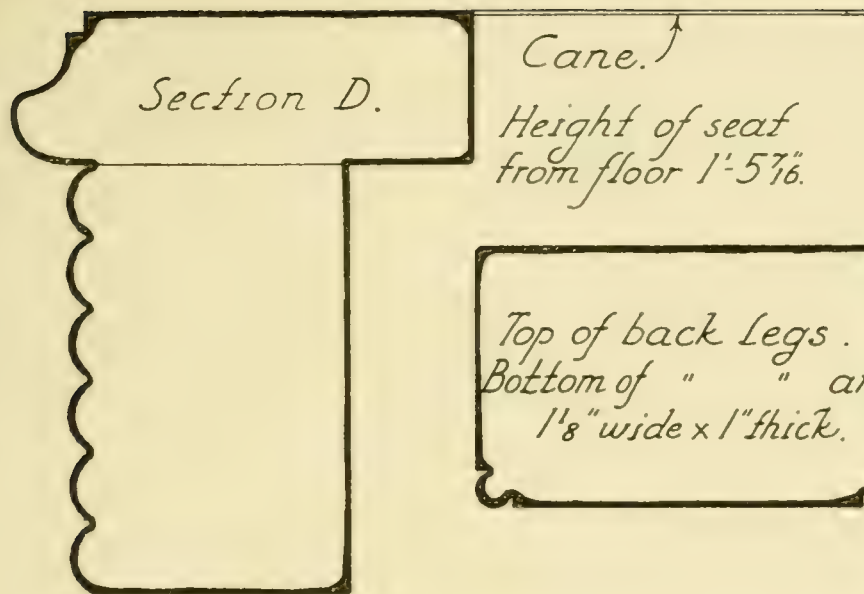 Section D.
Cane.
Height of seat
from floor 1'-5 7/16".
Top of back Legs.
Bottom of " "
1 1/8" wide x 1" thick.